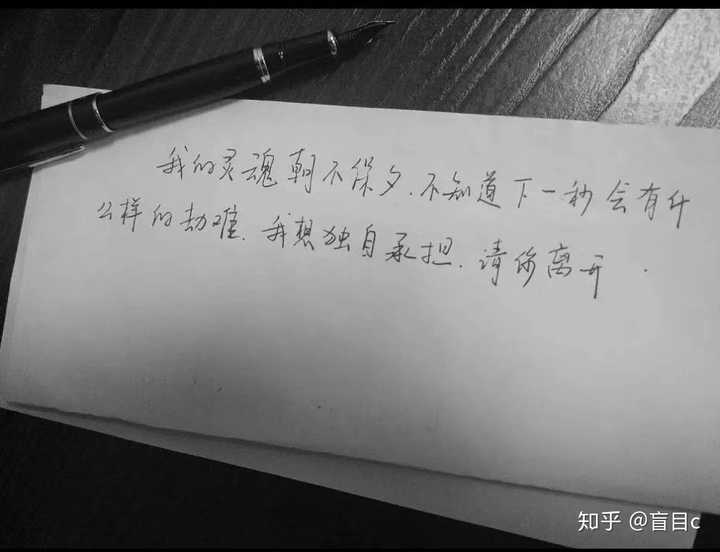 我的灵魂朝不保夕.不知道下一秒会有什
么样的劫难.我想独自承担.请你离开.
知乎 @盲目c